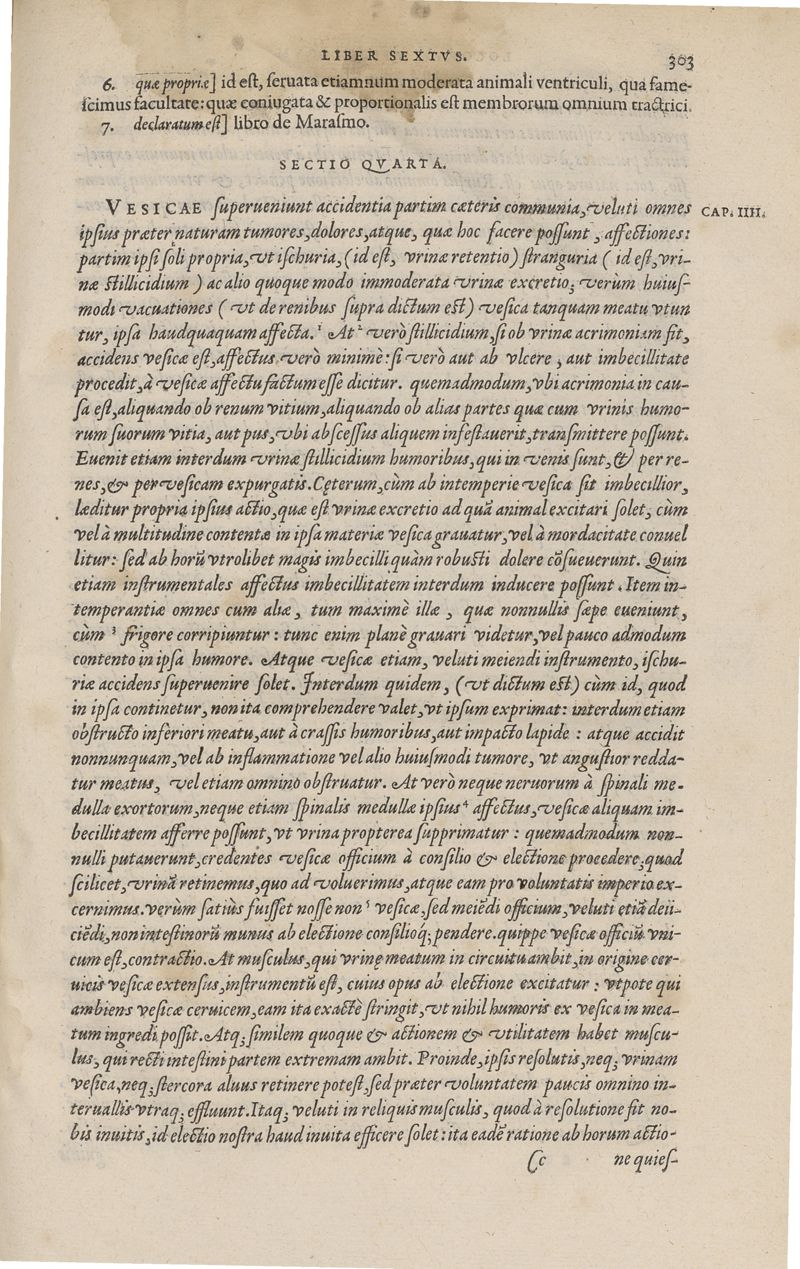 LIBER SEXTVS.
303
6. quæ propriæ] id eſt, ſeruata etiamnum moderata animali ventriculi, qua fame-
ſcimus facultate: quæ coniugata & proportionalis eſt membrorum omnium tractrici.
7. declaratum eſt] libro de Maraſmo.
SECTIO QVARTA.
CAP. IIII.
VESICAE ſuperueniunt accidentia partim cæteris communia, veluti omnes
ipſius præter naturam tumores, dolores, atque, quæ hoc facere poſſunt, affectiones:
partim ipſi ſoli propria, vt iſchuria, (id eſt, vrinæ retentio) ſtranguria (id eſt, vri-
næ ſtillicidium) ac alio quoque modo immoderata vrinæ excretio; verùm huiuſ-
modi vacuationes (vt de renibus ſupra dictum eſt) veſica tanquam meatu vtun
tur, ipſa haudquaquam affecta.¹ At² verò ſtillicidium, ſi ob vrinæ acrimoniam fit,
accidens veſicæ eſt, affectus verò minimè: ſi verò aut ab vlcere, aut imbecillitate
procedit, à veſicæ affectu factum eſſe dicitur. quemadmodum, vbi acrimonia in cau-
ſa eſt, aliquando ob renum vitium, aliquando ob alias partes quæ cum vrinis humo-
rum ſuorum vitia, aut pus, vbi abſceſſus aliquem infeſtauerit, tranſmittere poſſunt.
Euenit etiam interdum vrinæ ſtillicidium humoribus, qui in venis ſunt, & per re-
nes, & per veſicam expurgatis. Cęterum, cùm ab intemperie veſica ſit imbecillior,
læditur propria ipſius actio, quæ eſt vrinæ excretio ad quã animal excitari ſolet, cùm
vel à multitudine contentæ in ipſa materiæ veſica grauatur, vel à mordacitate conuel
litur: ſed ab horũ vtrolibet magis imbecilli quàm robuſti dolere cõſueuerunt. Quin
etiam inſtrumentales affectus imbecillitatem interdum inducere poſſunt. Item in-
temperantiæ omnes cum aliæ, tum maximè illæ, quæ nonnullis ſæpe eueniunt,
cùm³ frigore corripiuntur: tunc enim planè grauari videtur, vel pauco admodum
contento in ipſa humore. Atque veſicæ etiam, veluti meiendi inſtrumento, iſchu-
riæ accidens ſuperuenire ſolet. Interdum quidem, (vt dictum eſt) cùm id, quod
in ipſa continetur, non ita comprehendere valet, vt ipſum exprimat: interdum etiam
obſtructo inferiori meatu, aut à craſſis humoribus, aut impacto lapide: atque accidit
nonnunquam, vel ab inflammatione vel alio huiuſmodi tumore, vt anguſtior redda-
tur meatus, vel etiam omnino obſtruatur. At verò neque neruorum à ſpinali me-
dulla exortorum, neque etiam ſpinalis medullæ ipſius⁴ affectus, veſicæ aliquam im-
becillitatem afferre poſſunt, vt vrina propterea ſupprimatur: quemadmodum non-
nulli putauerunt, credentes veſicæ officium à conſilio & electione procedere, quod
ſcilicet, vrinã retinemus, quo ad voluerimus, atque eam pro voluntatis imperio ex-
cernimus. verùm ſatiùs fuiſſet noſſe non⁵ veſicæ, ſed meiẽdi officium, veluti etiã deii-
ciẽdi, non inteſtinorũ munus ab electione conſilioq; pendere. quippe veſicæ officiũ vni-
cum eſt, contractio. At muſculus, qui vrinę meatum in circuitu ambit, in origine cer-
uicis veſicæ extenſus, inſtrumentũ eſt, cuius opus ab electione excitatur: vtpote qui
ambiens veſicæ ceruicem, eam ita exactè ſtringit, vt nihil humoris ex veſica in mea-
tum ingredi poſſit. Atq; ſimilem quoque & actionem & vtilitatem habet muſcu-
lus, qui recti inteſtini partem extremam ambit. Proinde, ipſis reſolutis, neq; vrinam
veſica, neq; ſtercora aluus retinere poteſt, ſed præter voluntatem paucis omnino in-
teruallis vtraq; effluunt. Itaq; veluti in reliquis muſculis, quod à reſolutione fit no-
bis inuitis, id electio noſtra haud inuita efficere ſolet: ita eadẽ ratione ab horum actio-
Cc
ne quieſ-